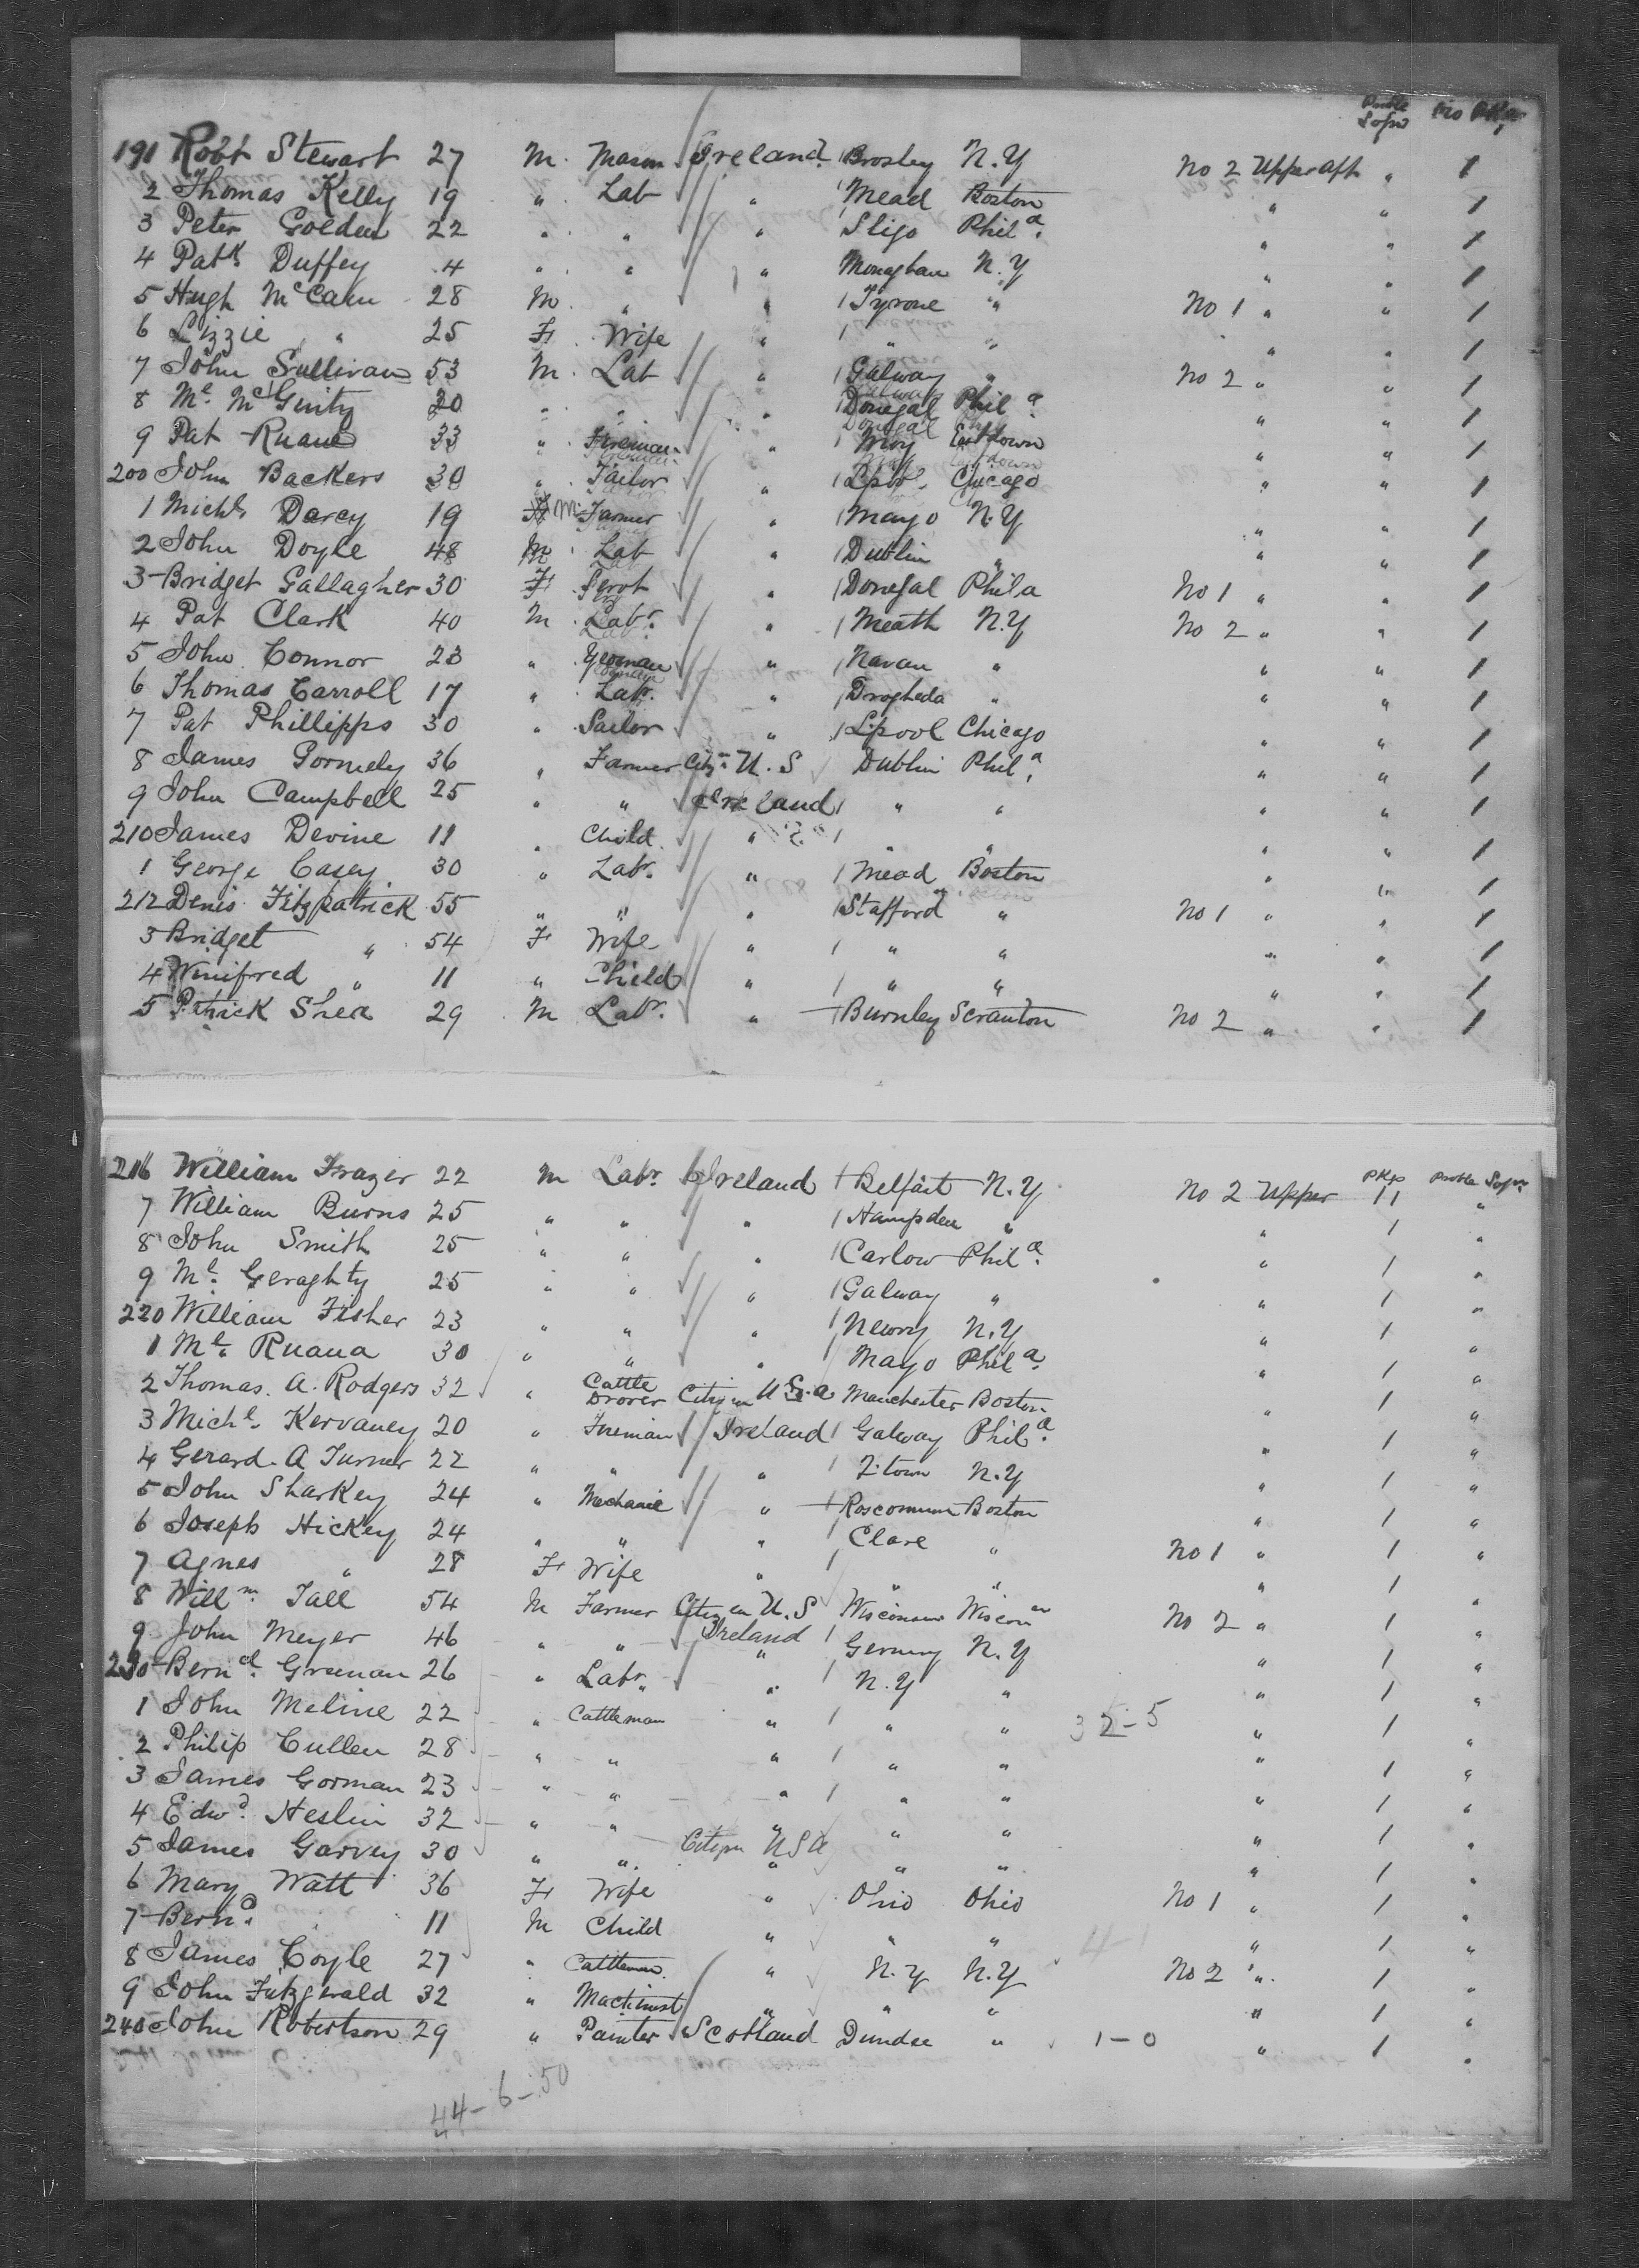 Proble Sojrn No Pkgs
191 Robt Stewart 27 M. Mason Ireland Brosley N.Y No 2 Upper Aft " 1
2 Thomas Kelly 19 " Lab " Mead Boston " " 1
3 Peter Golden 22 " " " Sligo Phila. " " 1
4 Patk Duffey 4 " " " Monaghan N.Y " " 1
5 Hugh McCann 28 M " " Tyrone " No 1 " " 1
6 Lizzie " 25 F Wife " " " " " 1
7 John Sullivan 53 M. Lab " Galway " No 2 " " 1
8 Ml. McGinty 20 " " " Donegal Phila. " " 1
9 Pat Ruane 33 " Fireman " Moy Eastdown " " 1
200 John Backers 30 " Tailor " Lpool. Chicago " " 1
1 Michl. Darcy 19 M. Farmer " Mayo N.Y " " 1
2 John Doyle 48 M Lab " Dublin " " " 1
3 Bridget Gallagher 30 F Servt " Donegal Phila No 1 " " 1
4 Pat Clark 40 M Labr. " Meath N.Y No 2 " " 1
5 John Connor 23 " Yeoman " Navan " " " 1
6 Thomas Carroll 17 " Labr. " Drogheda " " " 1
7 Pat Phillipps 30 " Sailor " L'pool Chicago " " 1
8 James Gormely 36 " Farmer Citzn U.S Dublin Phila. " " 1
9 John Campbell 25 " " Ireland " " " " 1
210 James Devine 11 " Child " " " " " 1
1 George Casey 30 " Labr. " Mead Boston " " 1
212 Denis Fitzpatrick 55 " " " Stafford " No 1 " " 1
3 Bridget " 54 F Wife " " " " " 1
4 Winifred " 11 " Child " " " " " 1
5 Patrick Shea 29 M Labr. " Burnley Scranton No 2 " " 1
Pkgs Proble Sojrn
216 William Frazer 22 M Labr. Ireland Belfast N.Y No 2 Upper 11 "
7 William Burns 25 " " " Hampden " " 1 "
8 John Smith 25 " " " Carlow Phila. " 1 "
9 Ml. Geraghty 25 " " " Galway " " 1 "
220 William Fisher 23 " " " Newry N.Y " 1 "
1 Ml. Ruana 30 " " " Mayo Phila. " 1 "
2 Thomas. A. Rodgers 32 " Cattle Drover Citizen U.S.a Manchester Boston " 1 "
3 Michl. Kervaney 20 " Fireman Ireland Galway Phila. " 1 "
4 Gerard. A Turner 22 " " " Q.town N.Y " 1 "
5 John Sharkey 24 " Mechanic " Roscommon Boston " 1 "
6 Joseph Hickey 24 " " " Clare " No 1 " 1 "
7 Agnes " 28 F Wife " " " " 1 "
8 Willm. Tall 54 M Farmer Citizen U.S Wisconsin Wisconn No 2 " 1 "
9 John Meyer 46 " " Ireland " Germny N.Y " 1 "
230 Bernd. Greenan 26 " Labr. " N.Y " " 1 "
1 John Meline 22 " Cattleman " " " 32-5 " 1 "
2 Philip Cullen 28 " " " " " " 1 "
3 James Gorman 23 " " " " " " 1 "
4 Edwd. Heslin 32 " " " " " " 1 "
5 James Garvey 30 " " Citizn USA " " " " 1 "
6 Mary Watt 36 F Wife " Ohio Ohio No 1 " 1 "
7 Bernd. " 11 M Child " " " 4-1 " 1 "
8 James Coyle 27 " Cattleman " N.Y N.Y No 2 " 1 "
9 John Fitzgerald 32 " Machinist " " " " 1 "
240 John Robertson 29 " Painter Scotland Dundee " 1-0 " 1 "
44-6-50